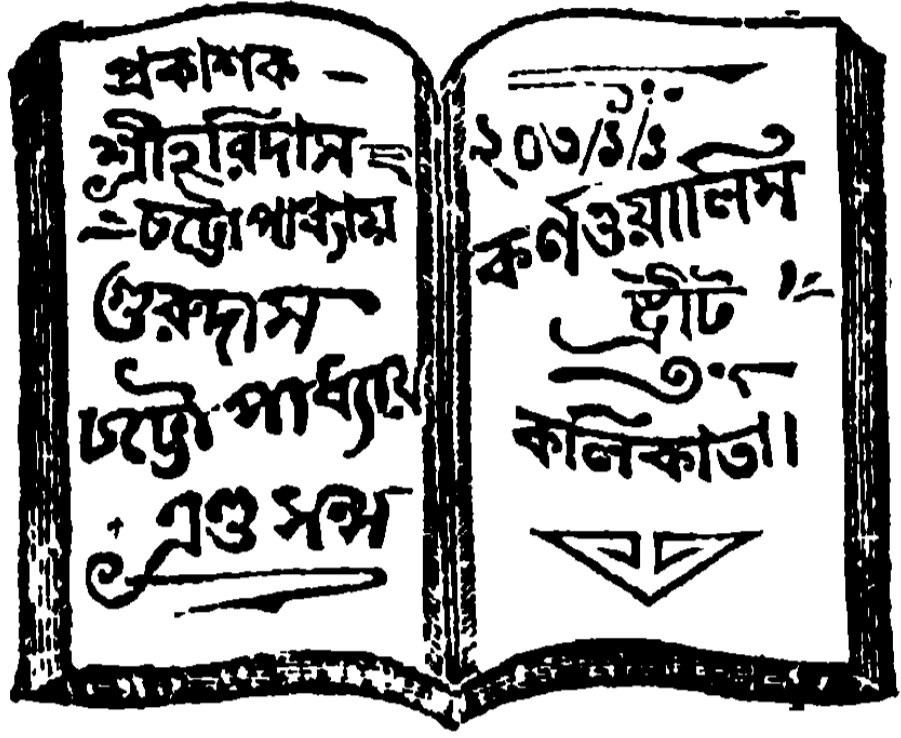 প্রকাশক –
শ্রীহরিদাস
চট্টোপাধ্যায়
গুরুদাস
চট্টোপাধ্যায়
এণ্ড সন্স
২০৩/১/১
কর্ণওয়ালিস
ষ্ট্রীট
কলিকাতা।